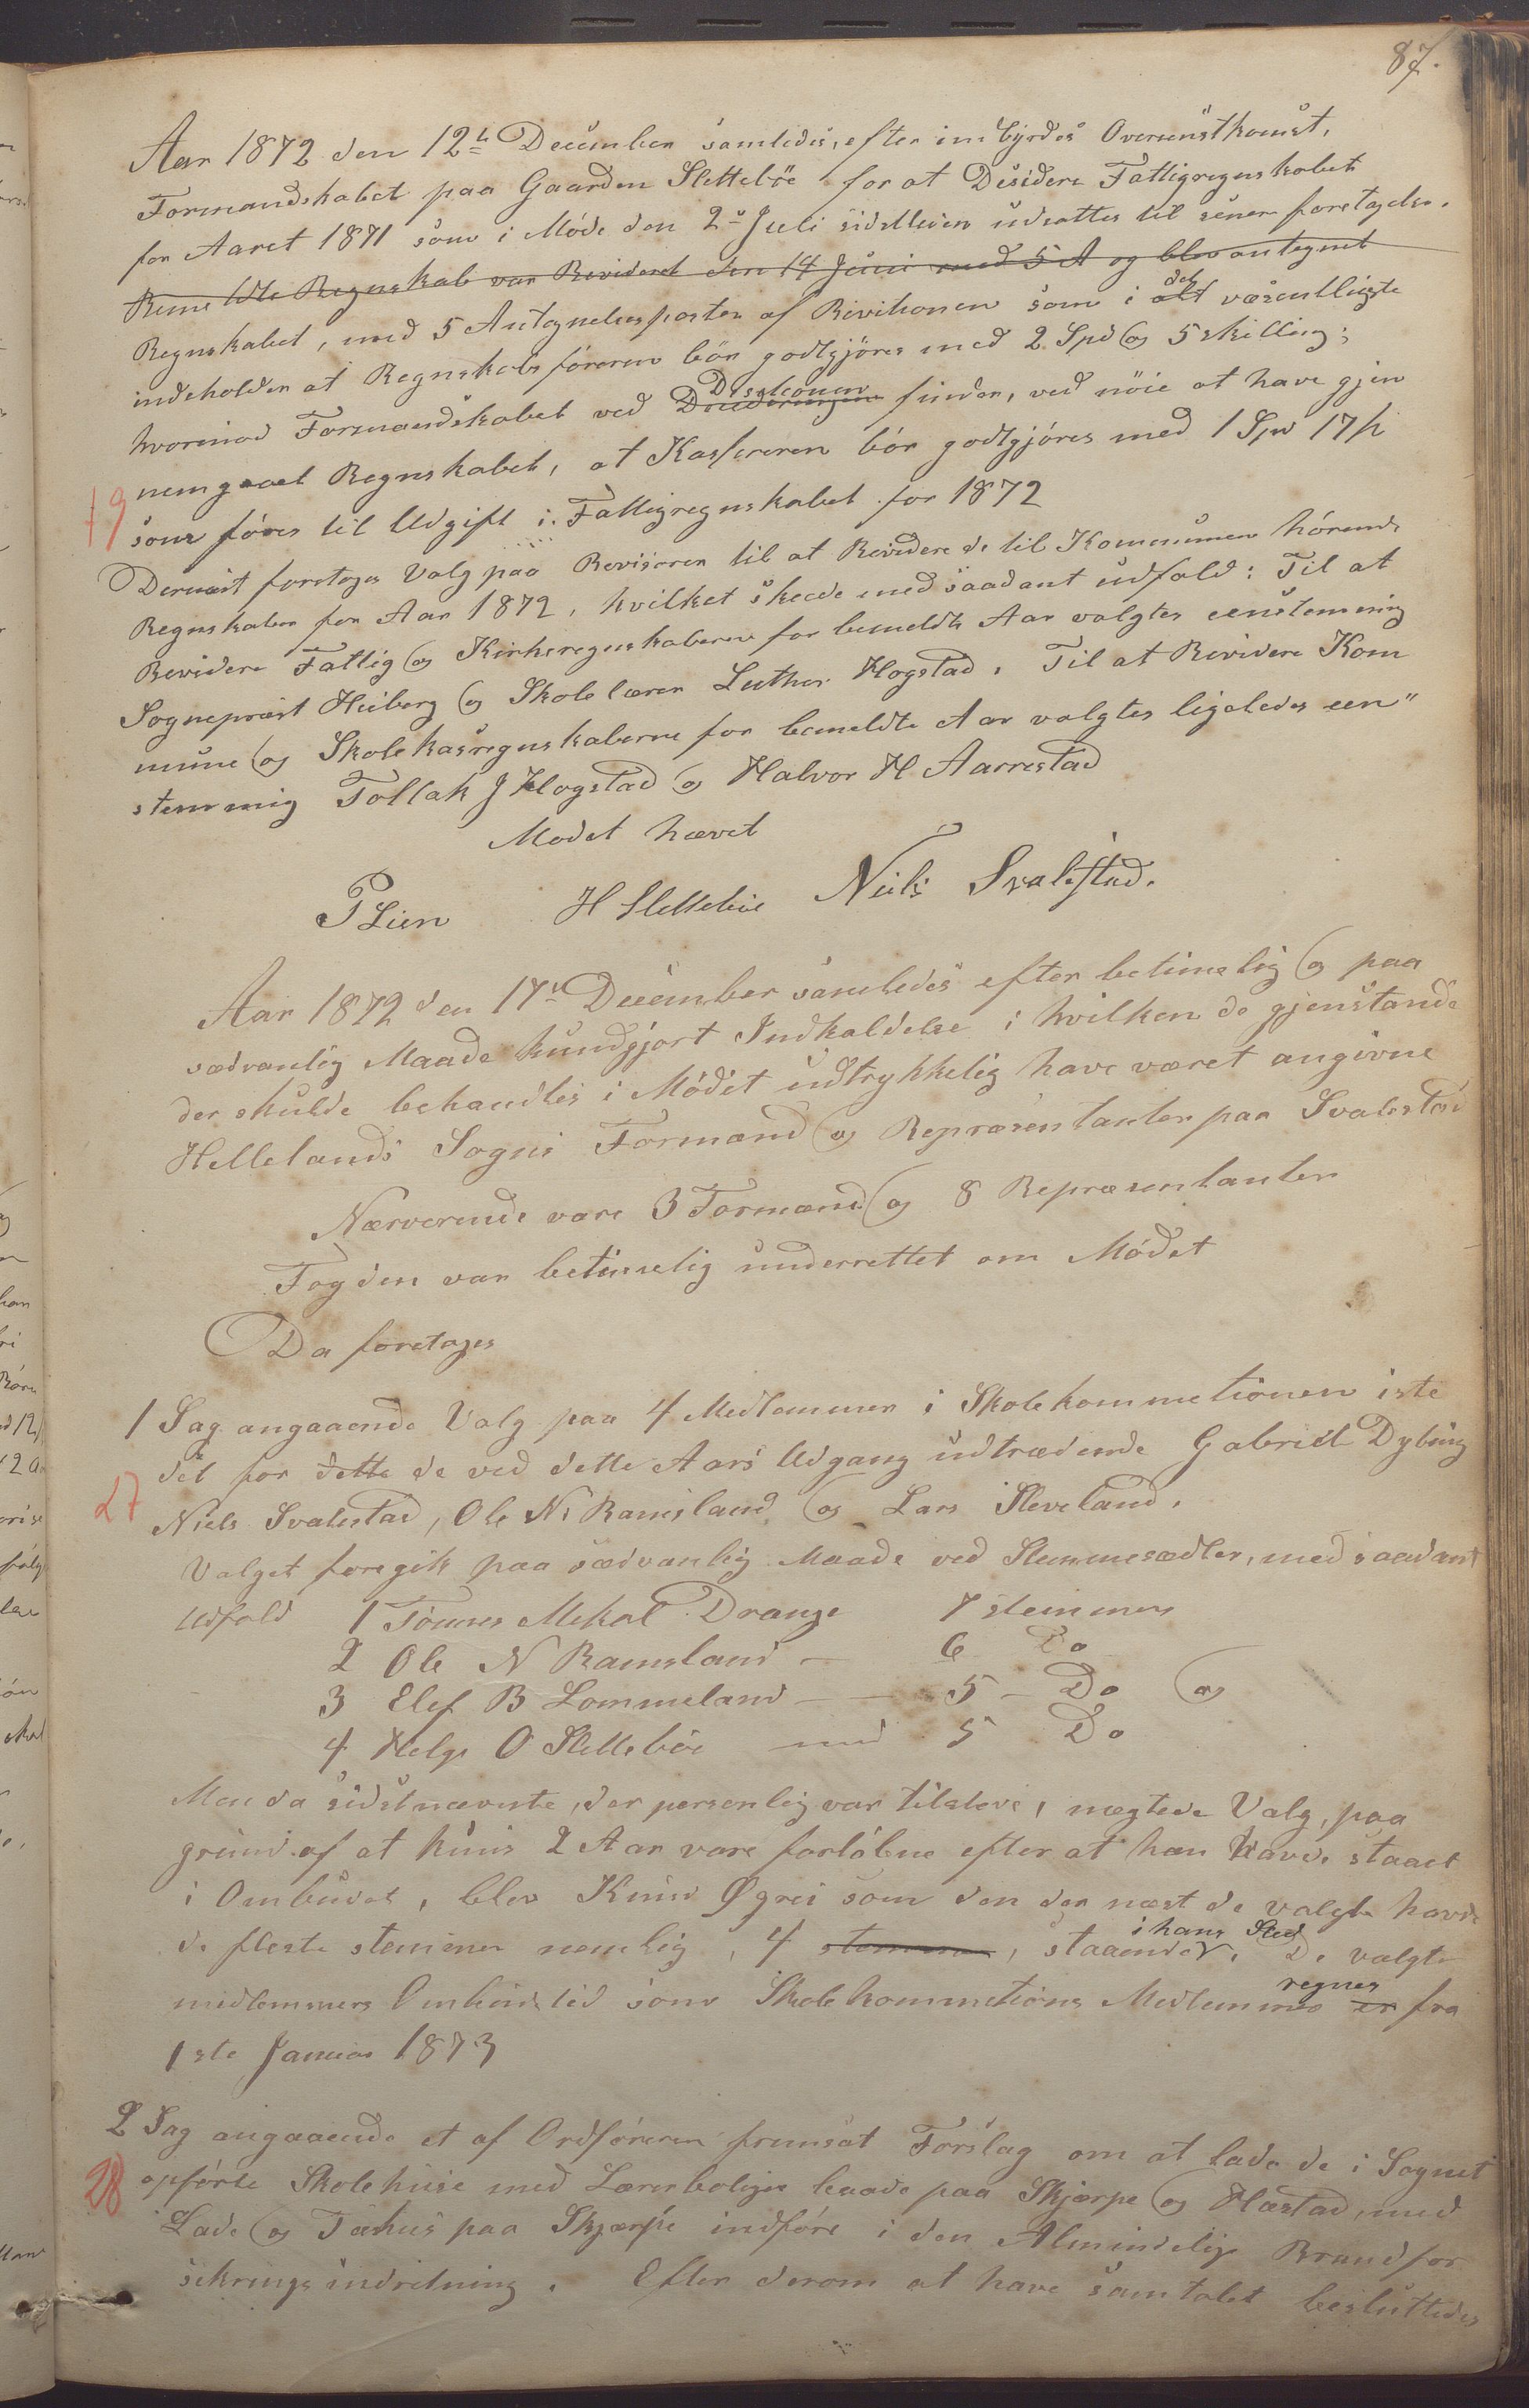 87.
Aar 1872 den 12te December samledes, efter inbyrdes Overenstkomst,
Formandskabet paa Gaarden Sletteböe for at Desidere Fattigregnskabet
for Aaret 1871 som i Möde den 2den Juli sidstleden udsattes til senere foretagelse.
Beme ldte Regnskab var Revideret den 14 Juni med 5 A og blev antegnet
Regnskabet, med 5 Antegnelsesposter af Revisionen som i alt det væsentligste
indeholder at Regnskabsföreren bör godtgjöres med 2 Spd og 5 skilling;
hvorimod Formandskabet ved Desisionen finder, ved nöie at have gjen
nemgaaet Regnskabet, at Kassereren bör godtgjöres med 1 Spd 17 s
19 som föres til Udgift i Fattigregnskabet for 1872
Dernæst foretoges Valg paa Revisorer til at Revidere de til Kommunen hörende
Regnskaber for Aar 1872, hvilket skeede med saadant udfald: Til at
Revidere Fattig og Kirkeregnskaberne for bemeldte Aar valgtes eenstemmig
Sogneprest Heiberg og Skolelærer Luther Hogstad. Til at Revidere Kom
mune og Skolekasregnskaberne for bemeldte Aar valgtes ligeledes een"
stemmig Tollak J Hogstad og Halvor H Aarrestad
Mödet hævet
P Lien H Sletteböe Niels Svalestad.
Aar 1872 den 17de December samledes efter betimelig og paa
sædvanlig Maade kundgjort Indkaldelse i hvilken de gjenstande
der skulde behandles i Mödet udtrykkelig have været angivne
Hellelands Sogns Formænd og Repræsentanter paa Svalestad
Nærverende vare 3 Formænd og 8 Repræsentanter
Fogden var betimelig underrettet om Mödet
Da foretoges
1 Sag angaaende Valg paa 4 Medlemmer i Skolekommetionen iste
det for dette de ved dette Aars Udgang udtrædende Gabriel Dybing
27 Niels Svalestad, Ole N. Ramsland og Lars Sleveland.
Valget foregik paa sædvanlig Maade ved Stemmesedler, med saadant
Udfald 1 Tönnes Mekal Drange 7 stemmer
2 Ole N Ramsland — 6 Do
3 Elef B Lommeland — — 5 — Do og
4 Helge O Sletteböe med 5 Do
Men da sidstnævnte, der personlig var tilstede, nægtede Valg, paa
grund af at kuns 2 Aar vare forlöbne efter at han havde staaet
i Ombudet, blev Knud Øgrei som den der næst de valgte havde
de fleste stemmer nemlig, 4 stemmer, staaende i hans Sted. De valgte
medlemmers Ombudstid som Skolekommetions Medlemmer er regnes fra
1ste Januar 1873
2 Sag angaaende et af Ordföreren fremsat Forslag om at lade de i Sognet
28 opförte Skolehuse med Lærerboliger baade paa Skjerpe og Hæstad, med
Lade og Fæhus paa Skjærpe indföre i den Almindelige Brandfor
sikringsindretning. Efter derom at have samtalet besluttedes